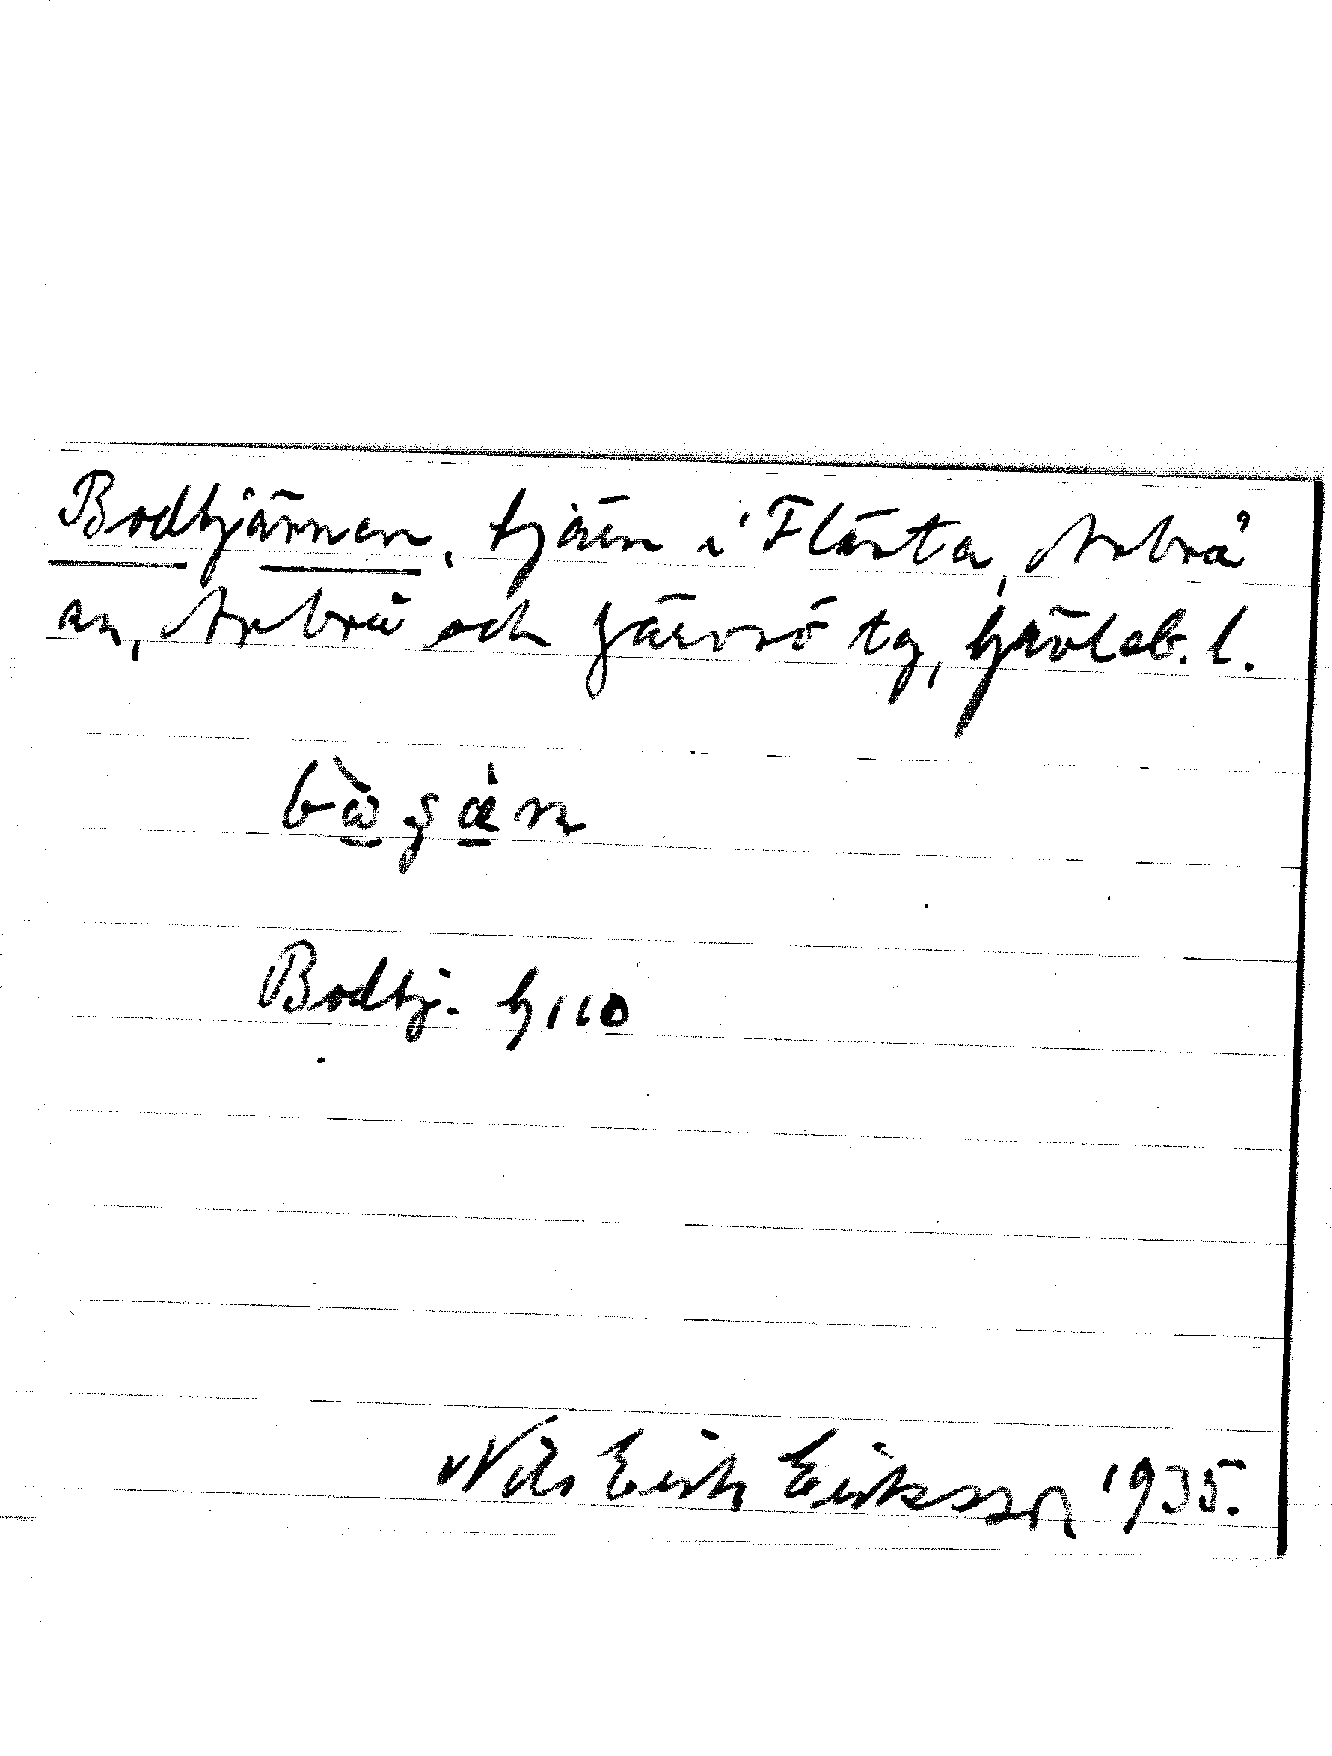 Bodtjärnen, tjärn i Flästa, Arbrå
sn, Arbrå och Järvsö tg, Gävleb. l.
Bodtj. G 110
Nils Erik Eriksson 1935.